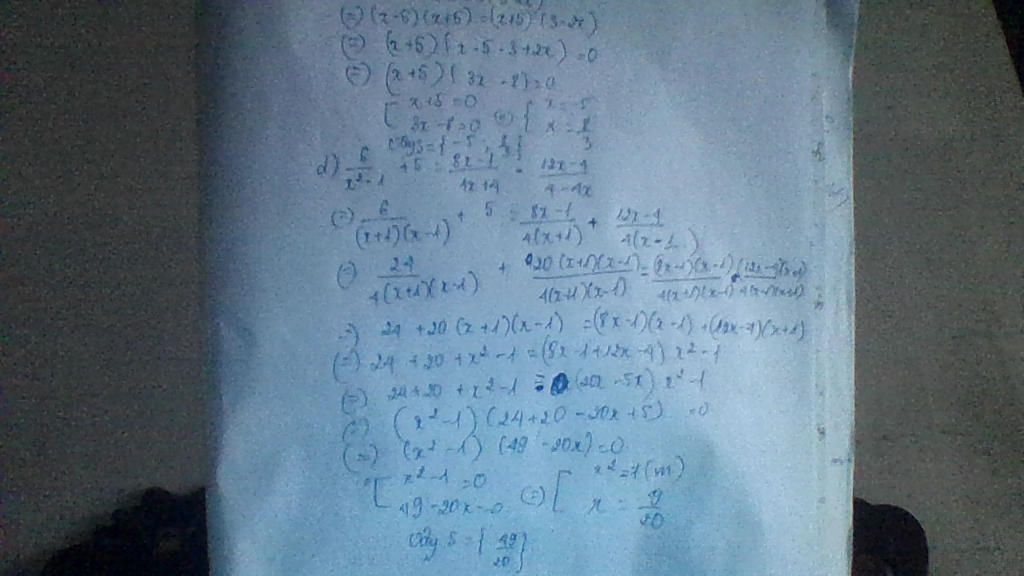 (=) (x-5)(x+5) = (x+5)(3-2x)
(=) (x+5)(x-5-3+2x) = 0
(=) (x+5)(3x-8) = 0
[ x+5=0 (=) [ x=-5
3x-8=0 x=8/3
Vậy S={-5, 8/3}
d) 6/(x²-1) + 5 = (8x-1)/(4x+4) - (12x-4)/(4-4x)
(=) 6/((x+1)(x-1)) + 5 = (8x-1)/(4(x+1)) + (12x-4)/(4(x-1))
(=) 24/(4(x+1)(x-1)) + 20(x+1)(x-1)/(4(x+1)(x-1)) = (8x-1)(x-1)/(4(x+1)(x-1)) + (12x-4)(x+1)/(4(x-1)(x+1))
=) 24 +20(x+1)(x-1) = (8x-1)(x-1) + (12x-4)(x+1)
(=) 24 +20 +x²-1 = (8x-1+12x-4) x²-1
(=) 24+20 +x²-1 = (20x-5x) x²-1
(=) (x²-1)(24+20-20x+5) =0
(=) (x²-1)(49-20x)=0
[ x²-1=0 (=) [ x²=1
49-20x=0 x = 9/20
Vậy S={49/20}